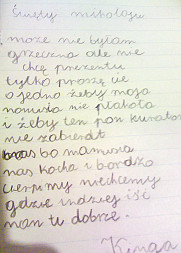 Święty mikołaju
może nie byłam
grzeczna ale nie
chcę prezentu
tylko proszę cie
o jedno żeby moja
mamusia nie płakała
i żeby ten pan kurator
nie zabierał
nas bo mamusia
nas kocha i bardzo
cierpimy niechcemy
gdzie indziej iść
nam tu dobrze.
Kinga